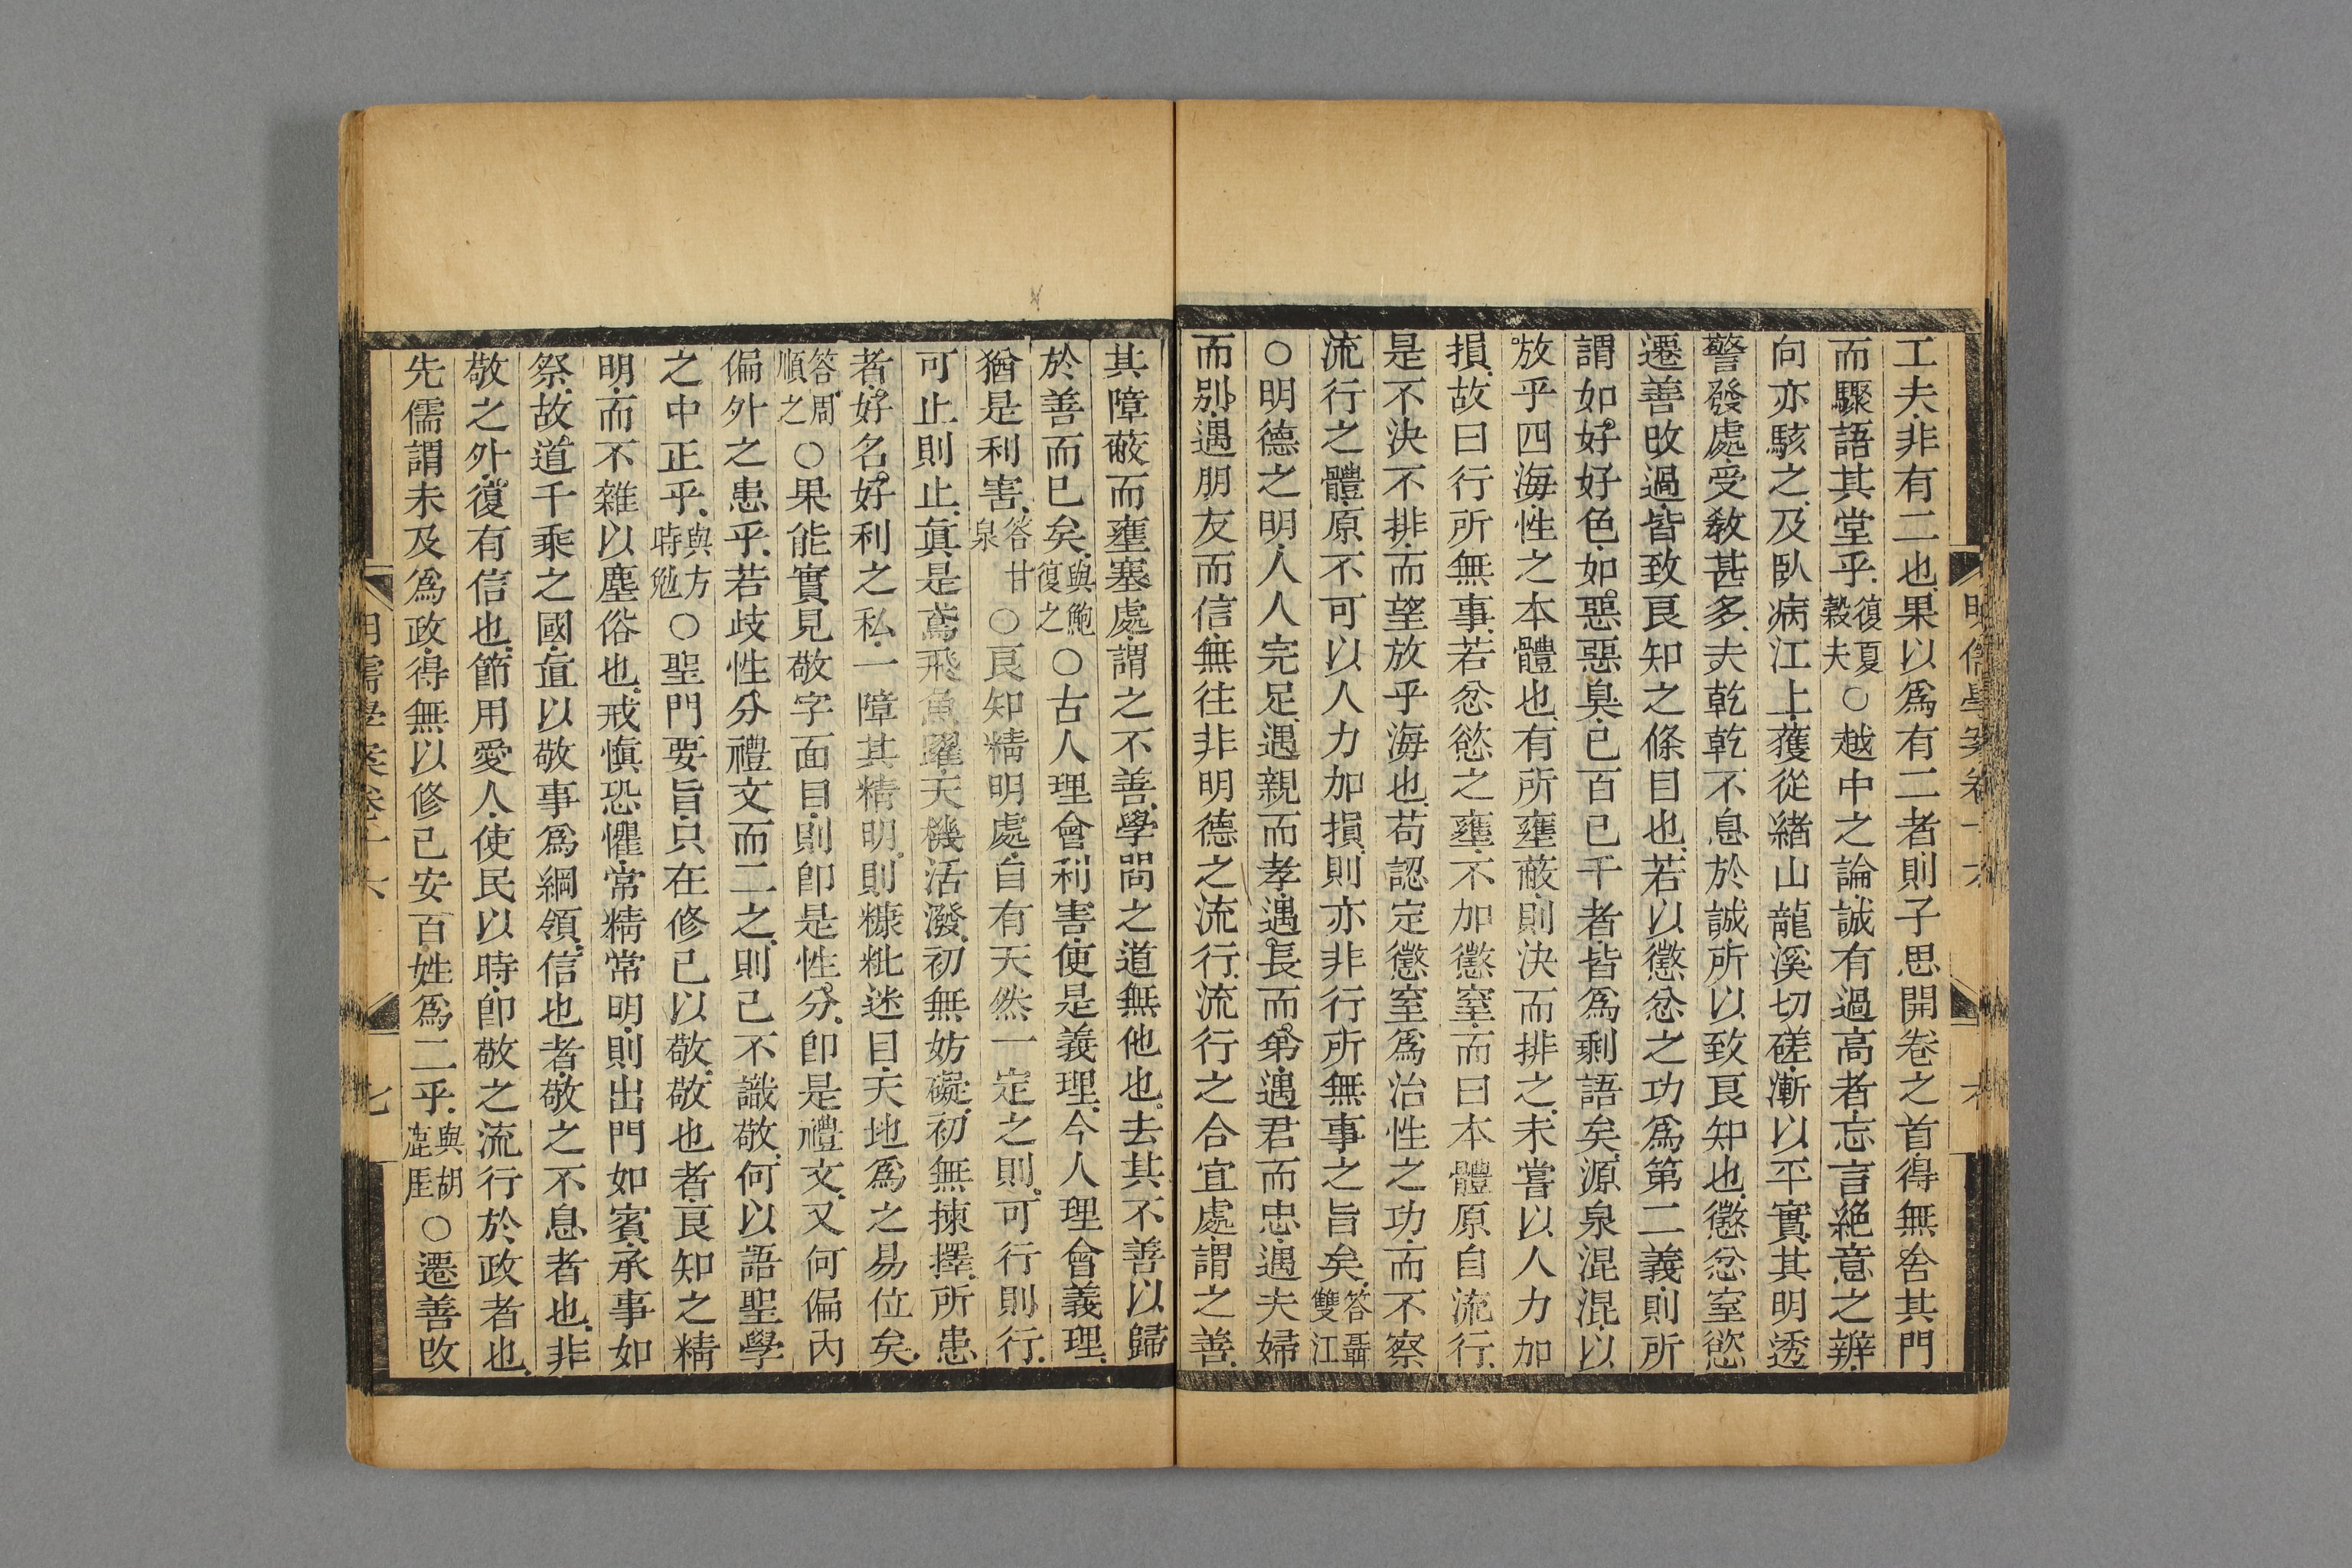 工夫非有二也果以爲有二者則子思開卷之首得無舍其門
而驟語其堂乎復夏穀夫○越中之論誠有過高者忘言絕意之辨
向亦駭之及臥病江上獲從緒山龍溪切磋漸以平實其明透
警發處受敎甚多夫乾乾不息於誠所以致良知也懲忿窒慾
遷善改過皆致良知之條目也若以懲忿之功爲第二義則所
謂如好好色如惡惡臭已百已千者皆爲剩語矣源泉混混以
放乎四海性之本體也有所壅蔽則決而排之未嘗以人力加
損故曰行所無事若忿慾之壅不加懲窒而曰本體原自流行
是不決不排而望放乎海也苟認定懲窒爲治性之功而不察
流行之體原不可以人力加損則亦非行所無事之旨矣答聶雙江
○明德之明人人完足遇親而孝遇長而弟遇君而忠遇夫婦
而別遇朋友而信無往非明德之流行流行之合宜處謂之善
其障蔽而壅塞處謂之不善學問之道無他也去其不善以歸
於善而已矣與鮑復之○古人理會利害便是義理今人理會義理
猶是利害答甘泉○良知精明處自有天然一定之則可行則行
可止則止眞是鳶飛魚躍天機活潑初無妨礙初無揀擇所患
者好名好利之私一障其精明則糠粃迷目天地爲之易位矣
答周順之○果能實見敬字面目則卽是性分卽是禮文又何偏內
偏外之患乎若歧性分禮文而二之則已不識敬何以語聖學
之中正乎與方時勉○聖門要旨只在修己以敬敬也者良知之精
明而不雜以塵俗也戒愼恐懼常精常明則出門如賓承事如
祭故道千乘之國直以敬事爲綱領信也者敬之不息者也非
敬之外復有信也節用愛人使民以時卽敬之流行於政者也
先儒謂未及爲政得無以修己安百姓爲二乎與胡鹿厓○遷善改
明儒學案卷十六
七